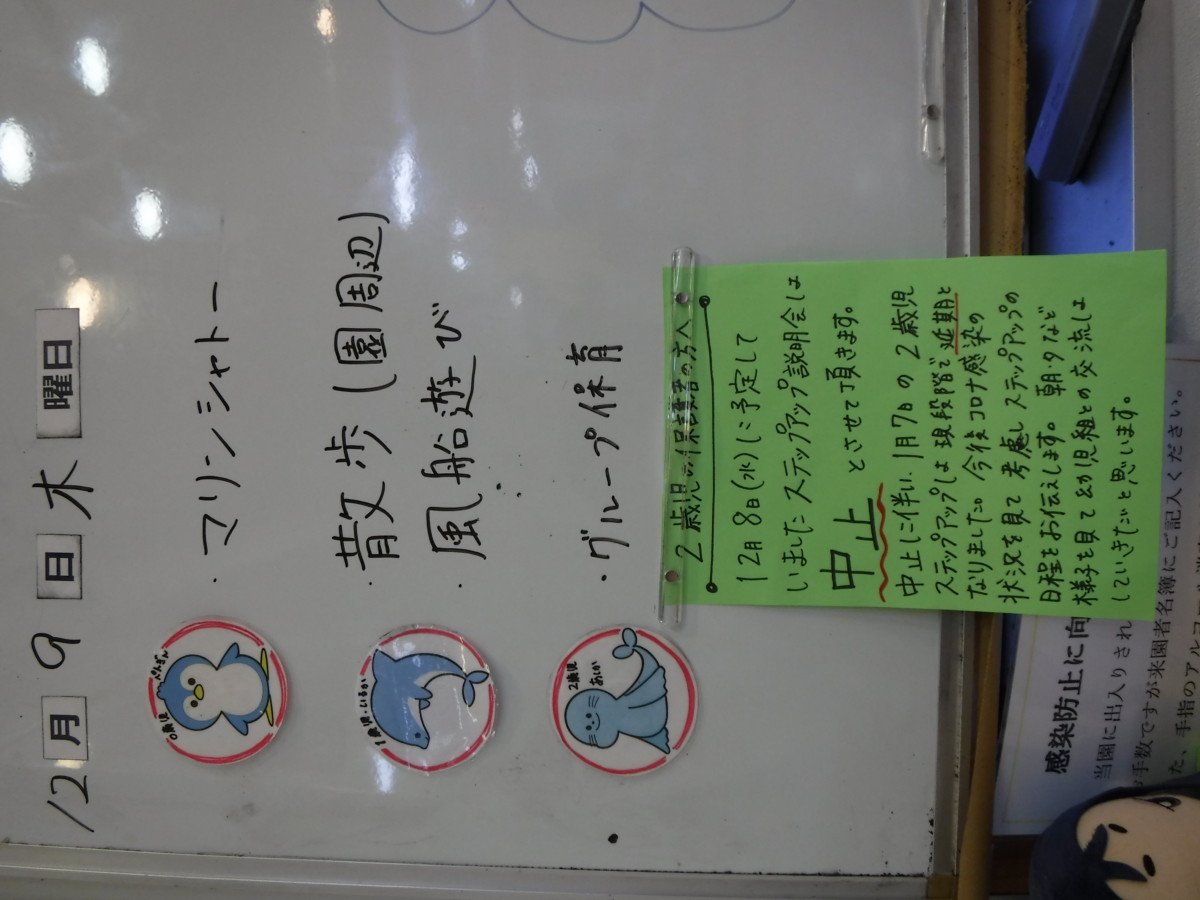 12月9日木曜日
0歳児 ぺんぎん
・マリンシャトー
1歳児・いるか
・散歩(園周辺)
・風船遊び
2歳児 あしか
・グループ保育
2歳児の保護者の方へ
12月8日(水)に予定して
いましたステップアップ説明会は
中止とさせて頂きます。
中止に伴い、1月7日の2歳児
ステップアップは現段階で延期と
なりました。今後コロナ感染の
状況を見て考慮しステップアップの
日程をお伝えします。朝・夕など
様子を見て幼児組との交流は
していきたいと思います。
感染防止に向
当園に出入りされ
手数ですが来園者名簿にご記入ください。
た、手指のアルコール消